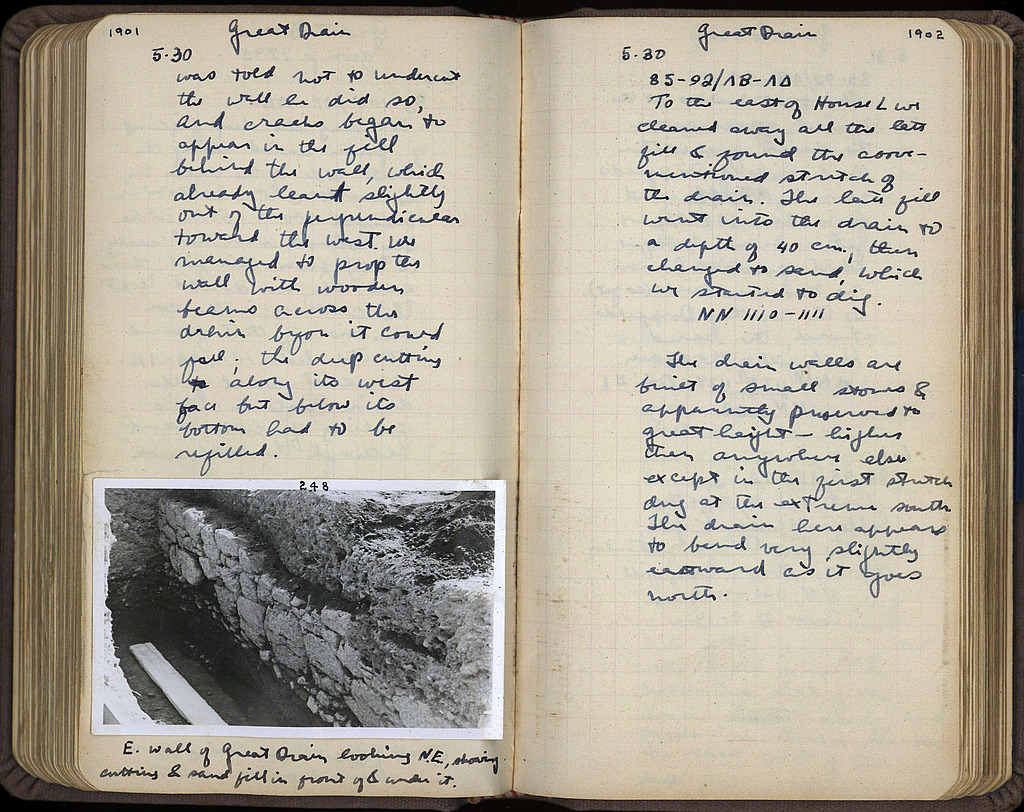 1901
Great Drain
5.30
was told not to undercut
the wall he did so,
and cracks began to
appear in the fill
behind the wall, which
already leant slightly
out of the perpendicular
toward the west. We
managed to prop the
wall with wooden
beams across the
drain before it could
fall; the deep cutting
along its west
face but below its
bottom had to be
refilled.
248
E. wall of Great Drain looking N.E., showing
cutting & sand fill in front of & under it.
1902
Great Drain
5.30
85-92/ΛΒ-ΛΔ
To the east of House L we
cleaned away all the late
fill & found the above-
mentioned stretch of
the drain. The late fill
went into the drain to
a depth of 40 cm., then
changed to sand, which
we started to dig.
NN 1110-1111
The drain walls are
built of small stones &
apparently preserved to
great height — higher
than anywhere else
except in the first stretch
dug at the extreme south
The drain here appears
to bend very slightly
eastward as it goes
north.